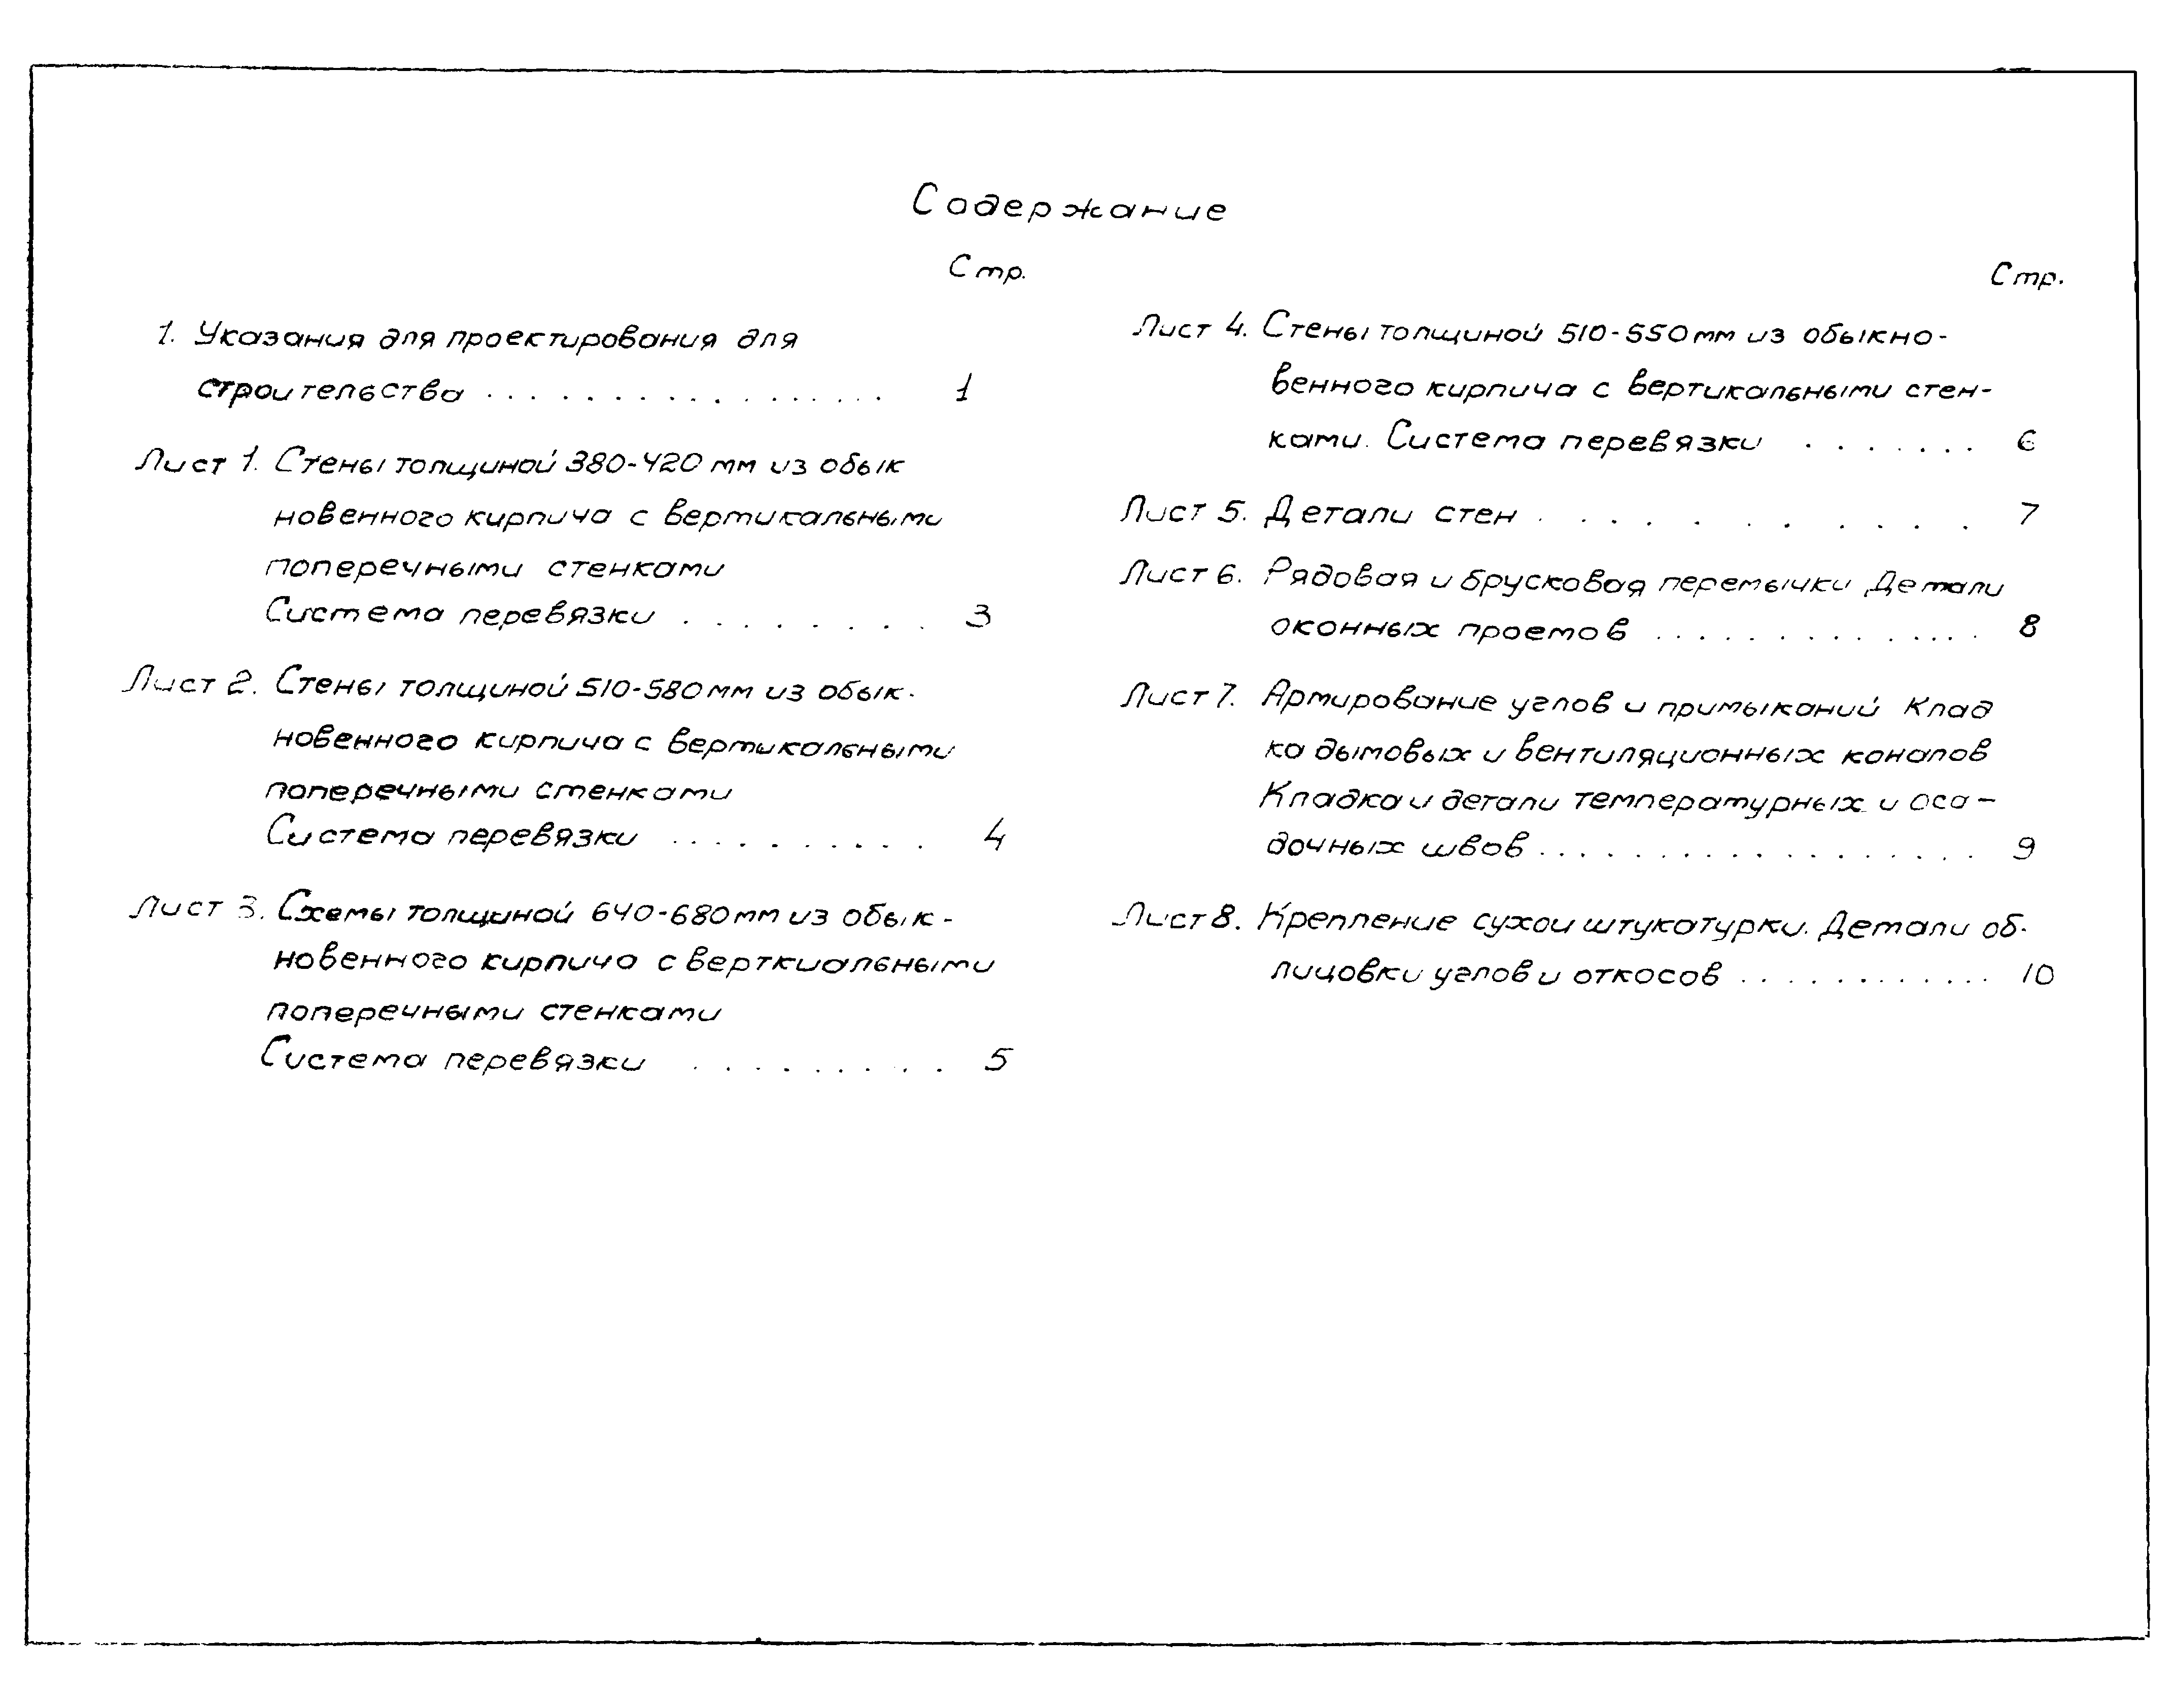 Содержание
Стр.
1. Указания для проектирования для
строительства . . . . . . . . . . . . . . . . 1
Лист 1. Стены толщиной 380-420 мм из обык
новенного кирпича с вертикальными
поперечными стенками
Система перевязки . . . . . . . . 3
Лист 2. Стены толщиной 510-580 мм из обык-
новенного кирпича с вертикальными
поперечными стенками
Система перевязки . . . . . . . . . . 4
Лист 3. Схемы толщиной 640-680 мм из обык-
новенного кирпича с верткиальными
поперечными стенками
Система перевязки . . . . . . . . . 5
Стр.
Лист 4. Стены толщиной 510-550 мм из обыкно-
венного кирпича с вертикальными стен-
ками. Система перевязки . . . . . . 6
Лист 5. Детали стен . . . . . . . . . . . 7
Лист 6. Рядовая и брусковая перемычки Детали
оконных проемов . . . . . . . . . . . . . . 8
Лист 7. Армирование углов и примыканий Клад
ка дымовых и вентиляционных каналов
Кладка и детали температурных и оса-
дочных швов . . . . . . . . . . . . . . . . . 9
Лист 8. Крепление сухои штукатурки. Детали об-
лицовки углов и откосов . . . . . . . . . . . . 10